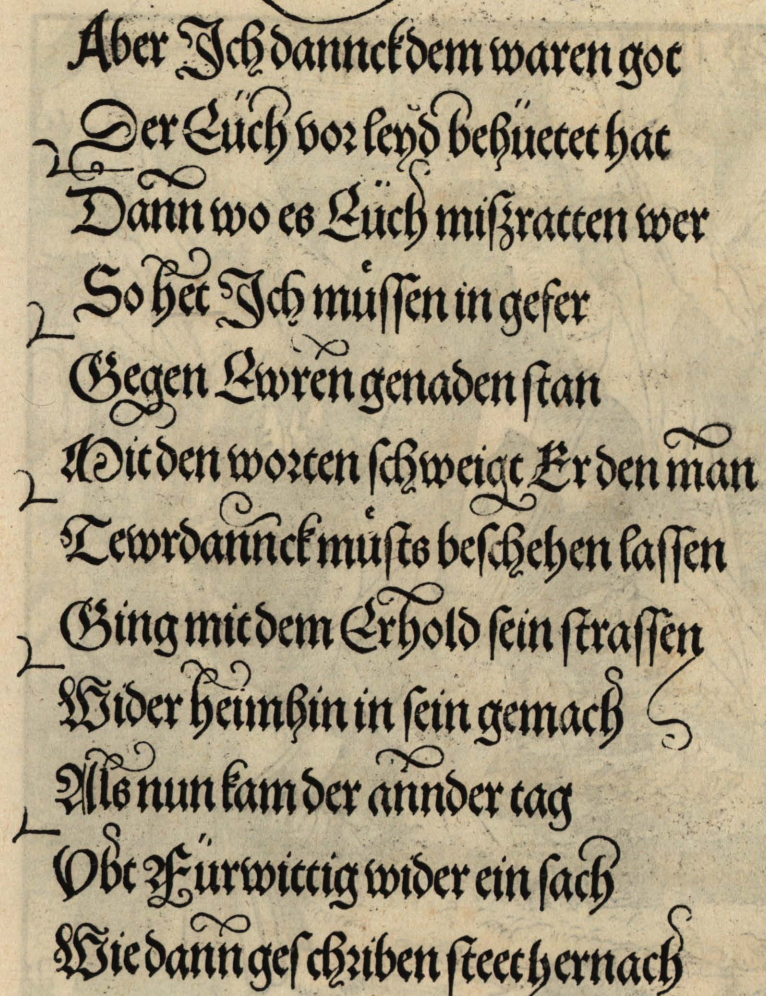 Aber Ich dannck dem waren got
Der Eüch vor leyd behüetet hat
Dann wo es Eüch miſzratten wer
So het Ich müſſen in gefer
Gegen Ewren genaden ſtan
Mit den worten ſchweigt Er den man
Tewrdannck müſts beſchehen laſſen
Ging mit dem Erhold ſein ſtraſſen
Wider heimhin in ſein gemach
Als nun kam der annder tag
Übt Fürwittig wider ein ſach
Wie dann geſchriben ſteet hernach